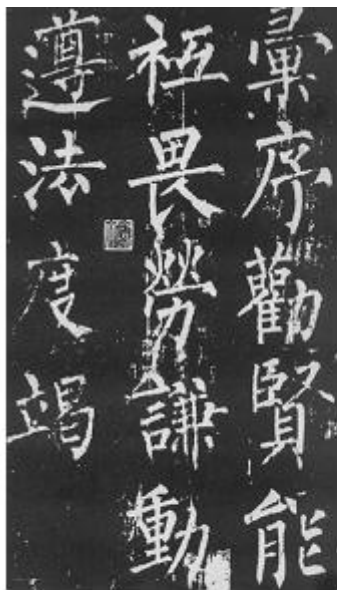 彙序勸賢能
祗畏勞謙動
遵法度竭